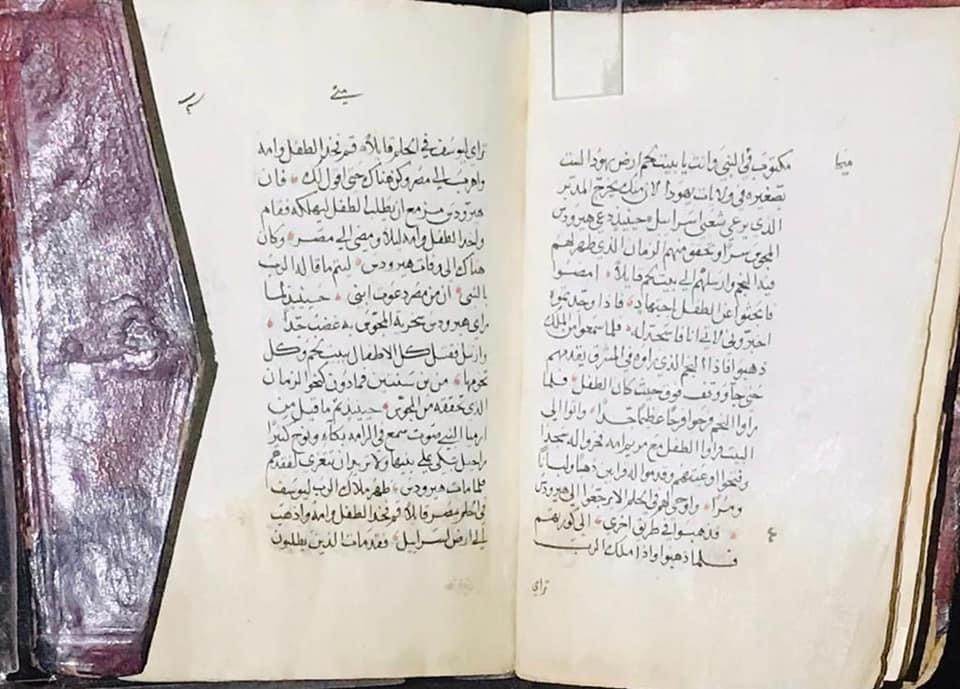 مكتوب في النبي وانت يا بيت لحم ارض يهودا لست
بصغيره في ولايات يهودا لان منك يخرج المدبر
الذي يرعى شعبي اسرايل حينيذ دعى هيرودس
المجوس سرا وتحقق منهم الزمان الذي ظهر لهم
فيه النجم وارسلهم الى بيت لحم قايلا امضوا
فابحثوا عن الطفل باجتهاد فاذا وجدتموه
اخبروني لاتي انا فاسجد له فلما سمعوا من الملك
ذهبوا فاذا النجم الذي راوه في المشرق يقدمهم
حتى جا ووقف فوق حيث كان الطفل فلما
راوا النجم فرحوا فرحا عظيما جدا واتوا الى
البيت فراوا الطفل مع مريم امه فخروا له سجدا
وفتحوا اوعيتهم وقدموا له قرابين ذهبا ولبانا
ومرا واوحي لهم في الحلم الا يرجعوا الى هيرودس
٤ فدهبوا في طريق اخرى الى كورتهم
فلما ذهبوا واذا ملاك الرب
تراي
متى
تراي ليوسف في الحلم قايلا قم فخد الطفل وامه
واهرب الى مصر وكن هناك حتى اقول لك فان
هيرودس مزمع ان يطلب الطفل ليهلكه فقام
واخد الطفل وامه ليلا ومضى الى مصر وكان
هناك الى وفاة هيرودس ليتم ما قاله الرب
بالنبي ان من مصر دعوت ابني حينيذ لما
راى هيرودس سخرية المجوس به غضب جدا
وارسل فقتل كل الاطفال ببيت لحم وكل
تخومها من بن سنتين فما دون كنحو الزمان
الذي تحققه من المجوس حينيذ تم ما قيل من
ارميا النبي صوت سمع في الرامه بكاء ونوح كثيرا
راحيل تبكي على بنيها ولا تريد ان تتعزى لفقدهم
فلما مات هيرودس ظهر ملاك الرب ليوسف
في حلم بمصر قايلا قم خد الطفل وامه واذهب
الى ارض اسرايل فقد مات الذين يطلبون